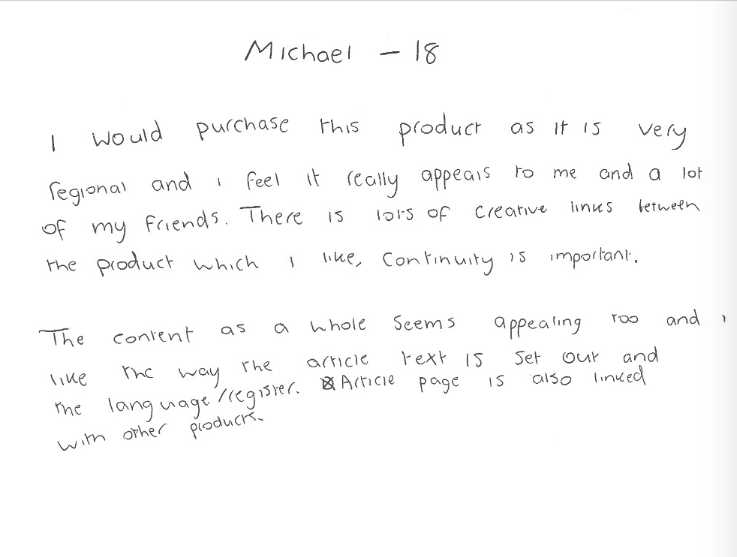 Michael - 18
I would purchase this product as it is very
regional and i feel it really appeals to me and a lot
of my friends. There is lots of creative links between
the product which I like, Continuity is important.
The content as a whole seems appealing too and i
like the way the article text is set out and
the language/register. Article page is also linked
with other products.